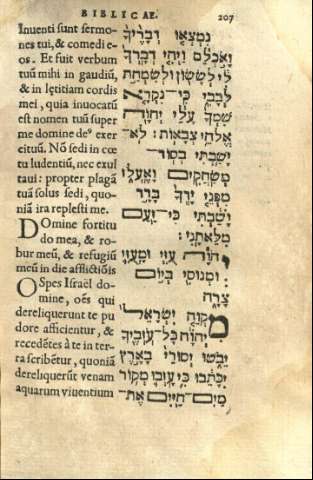 BIBLICAE. 207
Inuenti sunt sermo-
nes tui, & comedi e-
os. Et fuit verbum
tuū mihi in gaudiū,
& in lętitiam cordis
mei, quia inuocatū
est nomen tuū super
me domine deꝰ exer
cituū. Nō sedi in cœ
tu ludentiū, nec exul
taui: propter plagā
tuā solus sedi, quo-
niā ira replesti me.
DOmine fortitu
do mea, & ro-
bur meū, & refugiū
meū in die afflictiōis
OSpes Israël do-
mine, oēs qui
dereliquerunt te pu
dore afficientur, &
recedētes à te in ter-
ra scribētur, quoniā
dereliquerūt venam
aquarum viuentium
נִמְצְאוּ דְבָרֶיךָ
וָאֹכְלֵם וַיְהִי דְבָרְךָ
לִי לְשָׂשׂוֹן וּלְשִׂמְחַת
לְבָבִי כִּי־נִקְרָא
שִׁמְךָ עָלַי יְהוָה
אֱלֹהֵי צְבָאוֹת׃ לֹא־
יָשַׁבְתִּי בְסוֹד
מְשַׂחֲקִים וָאֶעְלֹז
מִפְּנֵי יָדְךָ בָּדָד
יָשַׁבְתִּי כִּי־זַעַם
מִלֵּאתָנִי׃
יְהוָה עֻזִּי וּמָעֻזִּי
וּמְנוּסִי בְּיוֹם
צָרָה
מִקְוֵה יִשְׂרָאֵל
יְהוָה כָּל־עֹזְבֶיךָ
יֵבֹשׁוּ יְסוּרַי בָּאָרֶץ
יִכָּתֵבוּ כִּי עָזְבוּ מְקוֹר
מַיִם־חַיִּים אֶת־